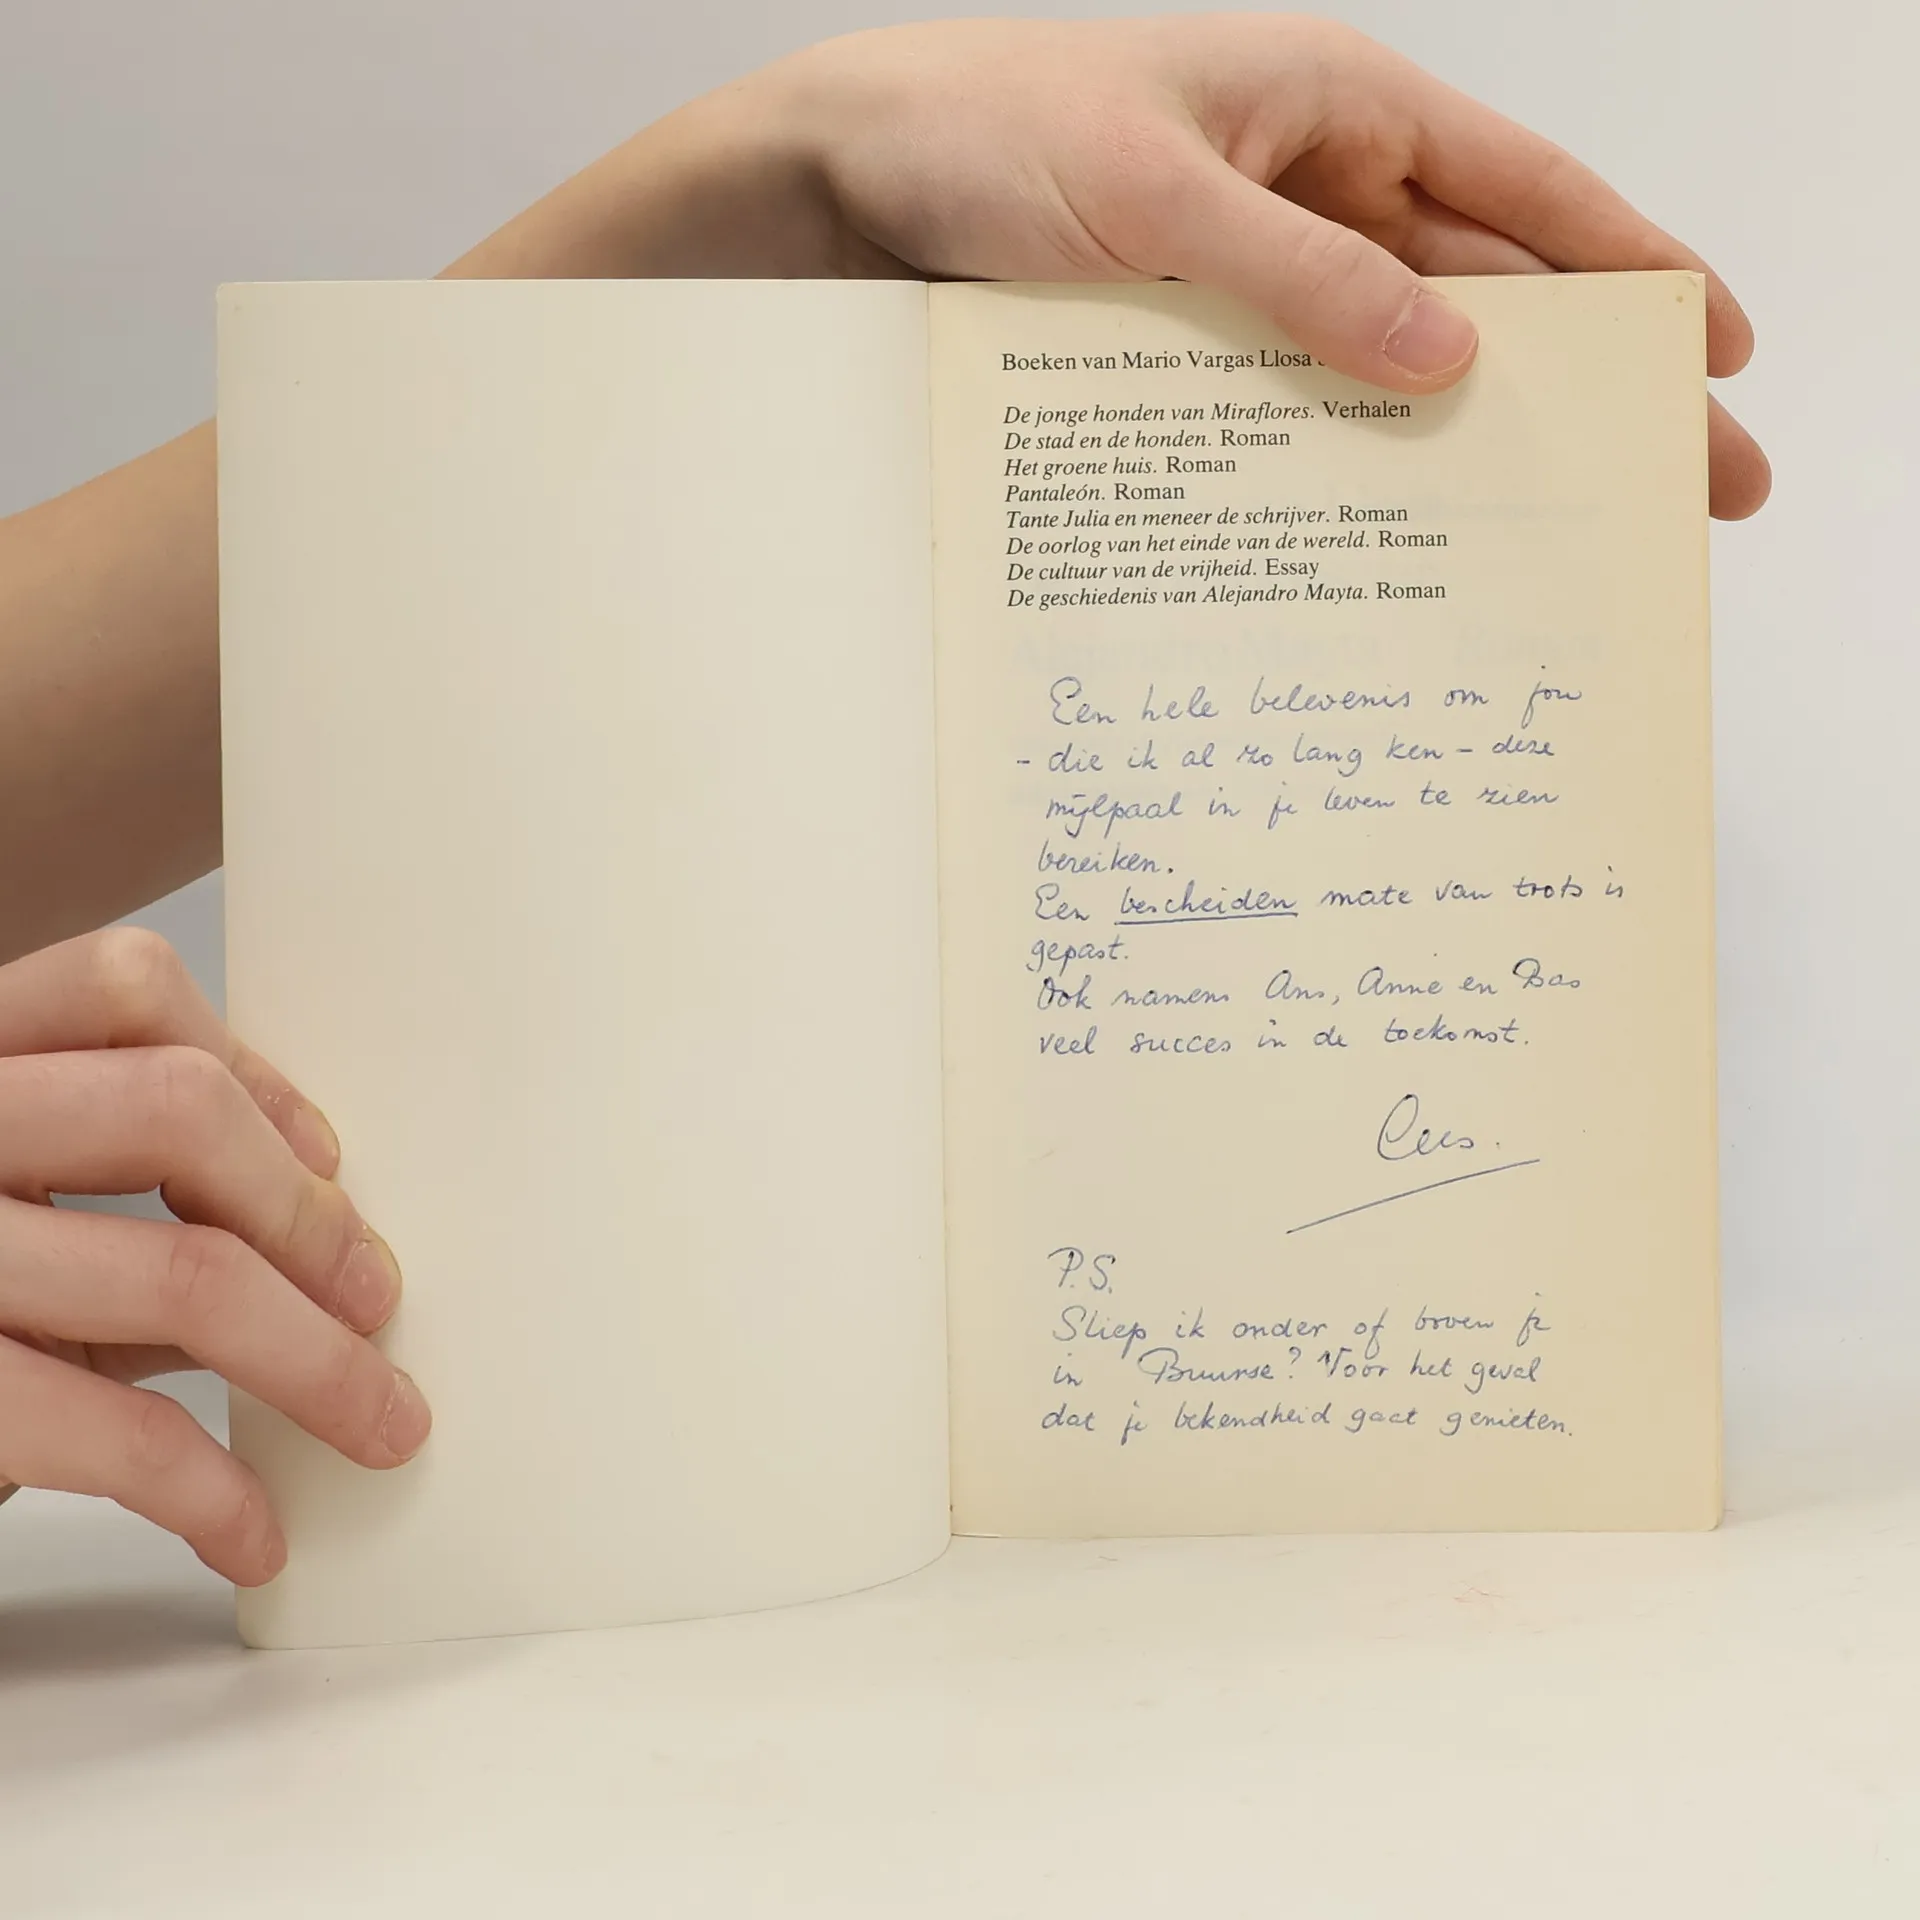 Boeken van Mario Vargas Llosa
De jonge honden van Miraflores. Verhalen
De stad en de honden. Roman
Het groene huis. Roman
Pantaleón. Roman
Tante Julia en meneer de schrijver. Roman
De oorlog van het einde van de wereld. Roman
De cultuur van de vrijheid. Essay
De geschiedenis van Alejandro Mayta. Roman
Een hele belevenis om jou
- die ik al zo lang ken - deze
mijlpaal in je leven te zien
bereiken.
Een bescheiden mate van trots is
gepast.
Ook namens Ans, Anne en Bas
veel succes in de toekomst.
Cees.
P.S.
Sliep ik onder of boven je
in Buurse? Voor het geval
dat je bekendheid gaat genieten.